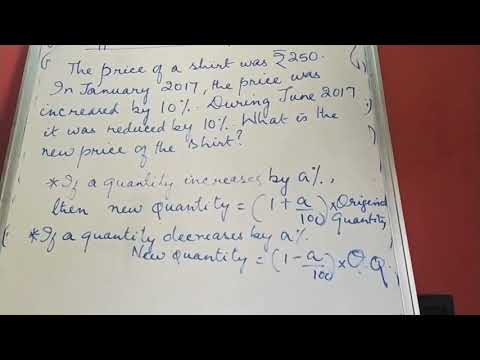 The price of a shirt was ₹250.
In January 2017, the price was
increased by 10%. During June 2017
it was reduced by 10%. What is the
new price of the shirt?
*If a quantity increases by a%,
then new quantity = (1 + a/100) × Original Quantity
*If a quantity decreases by a%.
New Quantity = (1 - a/100) × O.Q.